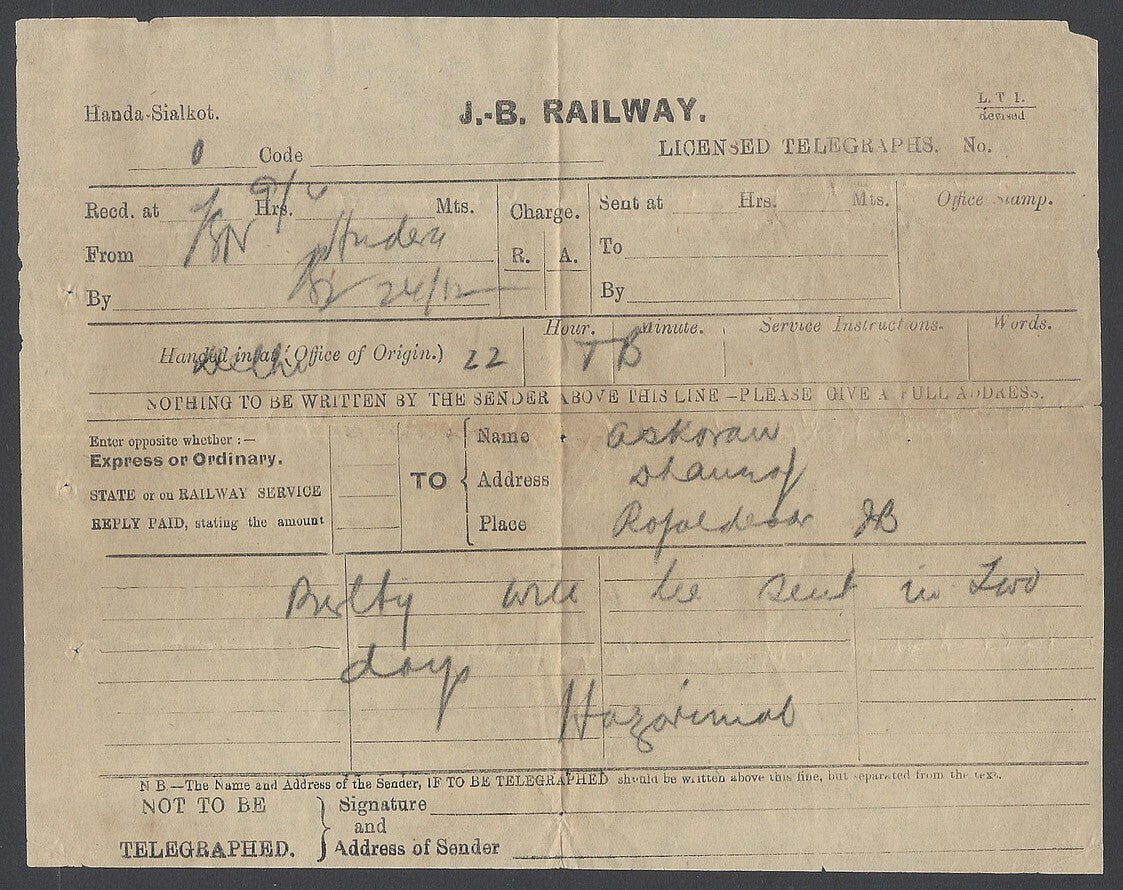 Handa-Sialkot.
J.-B. RAILWAY.
L. T 1.
Revised
0 Code
LICENSED TELEGRAPHS. No.
Recd. at Hrs. Mts.
Charge.
Sent at Hrs. Mts.
Office Stamp.
From
R. A.
To
By 24/12
By
Hour. Minute. Service Instructions. Words.
Handed in at (Office of Origin.) 22 T B
Delhi
NOTHING TO BE WRITTEN BY THE SENDER ABOVE THIS LINE—PLEASE GIVE A FULL ADDRESS.
Enter opposite whether :—
Express or Ordinary.
STATE or on RAILWAY SERVICE
REPLY PAID, stating the amount
TO
Name Askoran
Address
Place JB
Bilty will be sent in Two
days
Hazarimal
N B.—The Name and Address of the Sender, IF TO BE TELEGRAPHED should be written above this line, but separated from the text.
NOT TO BE
TELEGRAPHED.
Signature
and
Address of Sender